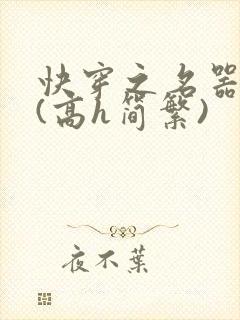 快穿之名器
(高h简繁)
夜不葉